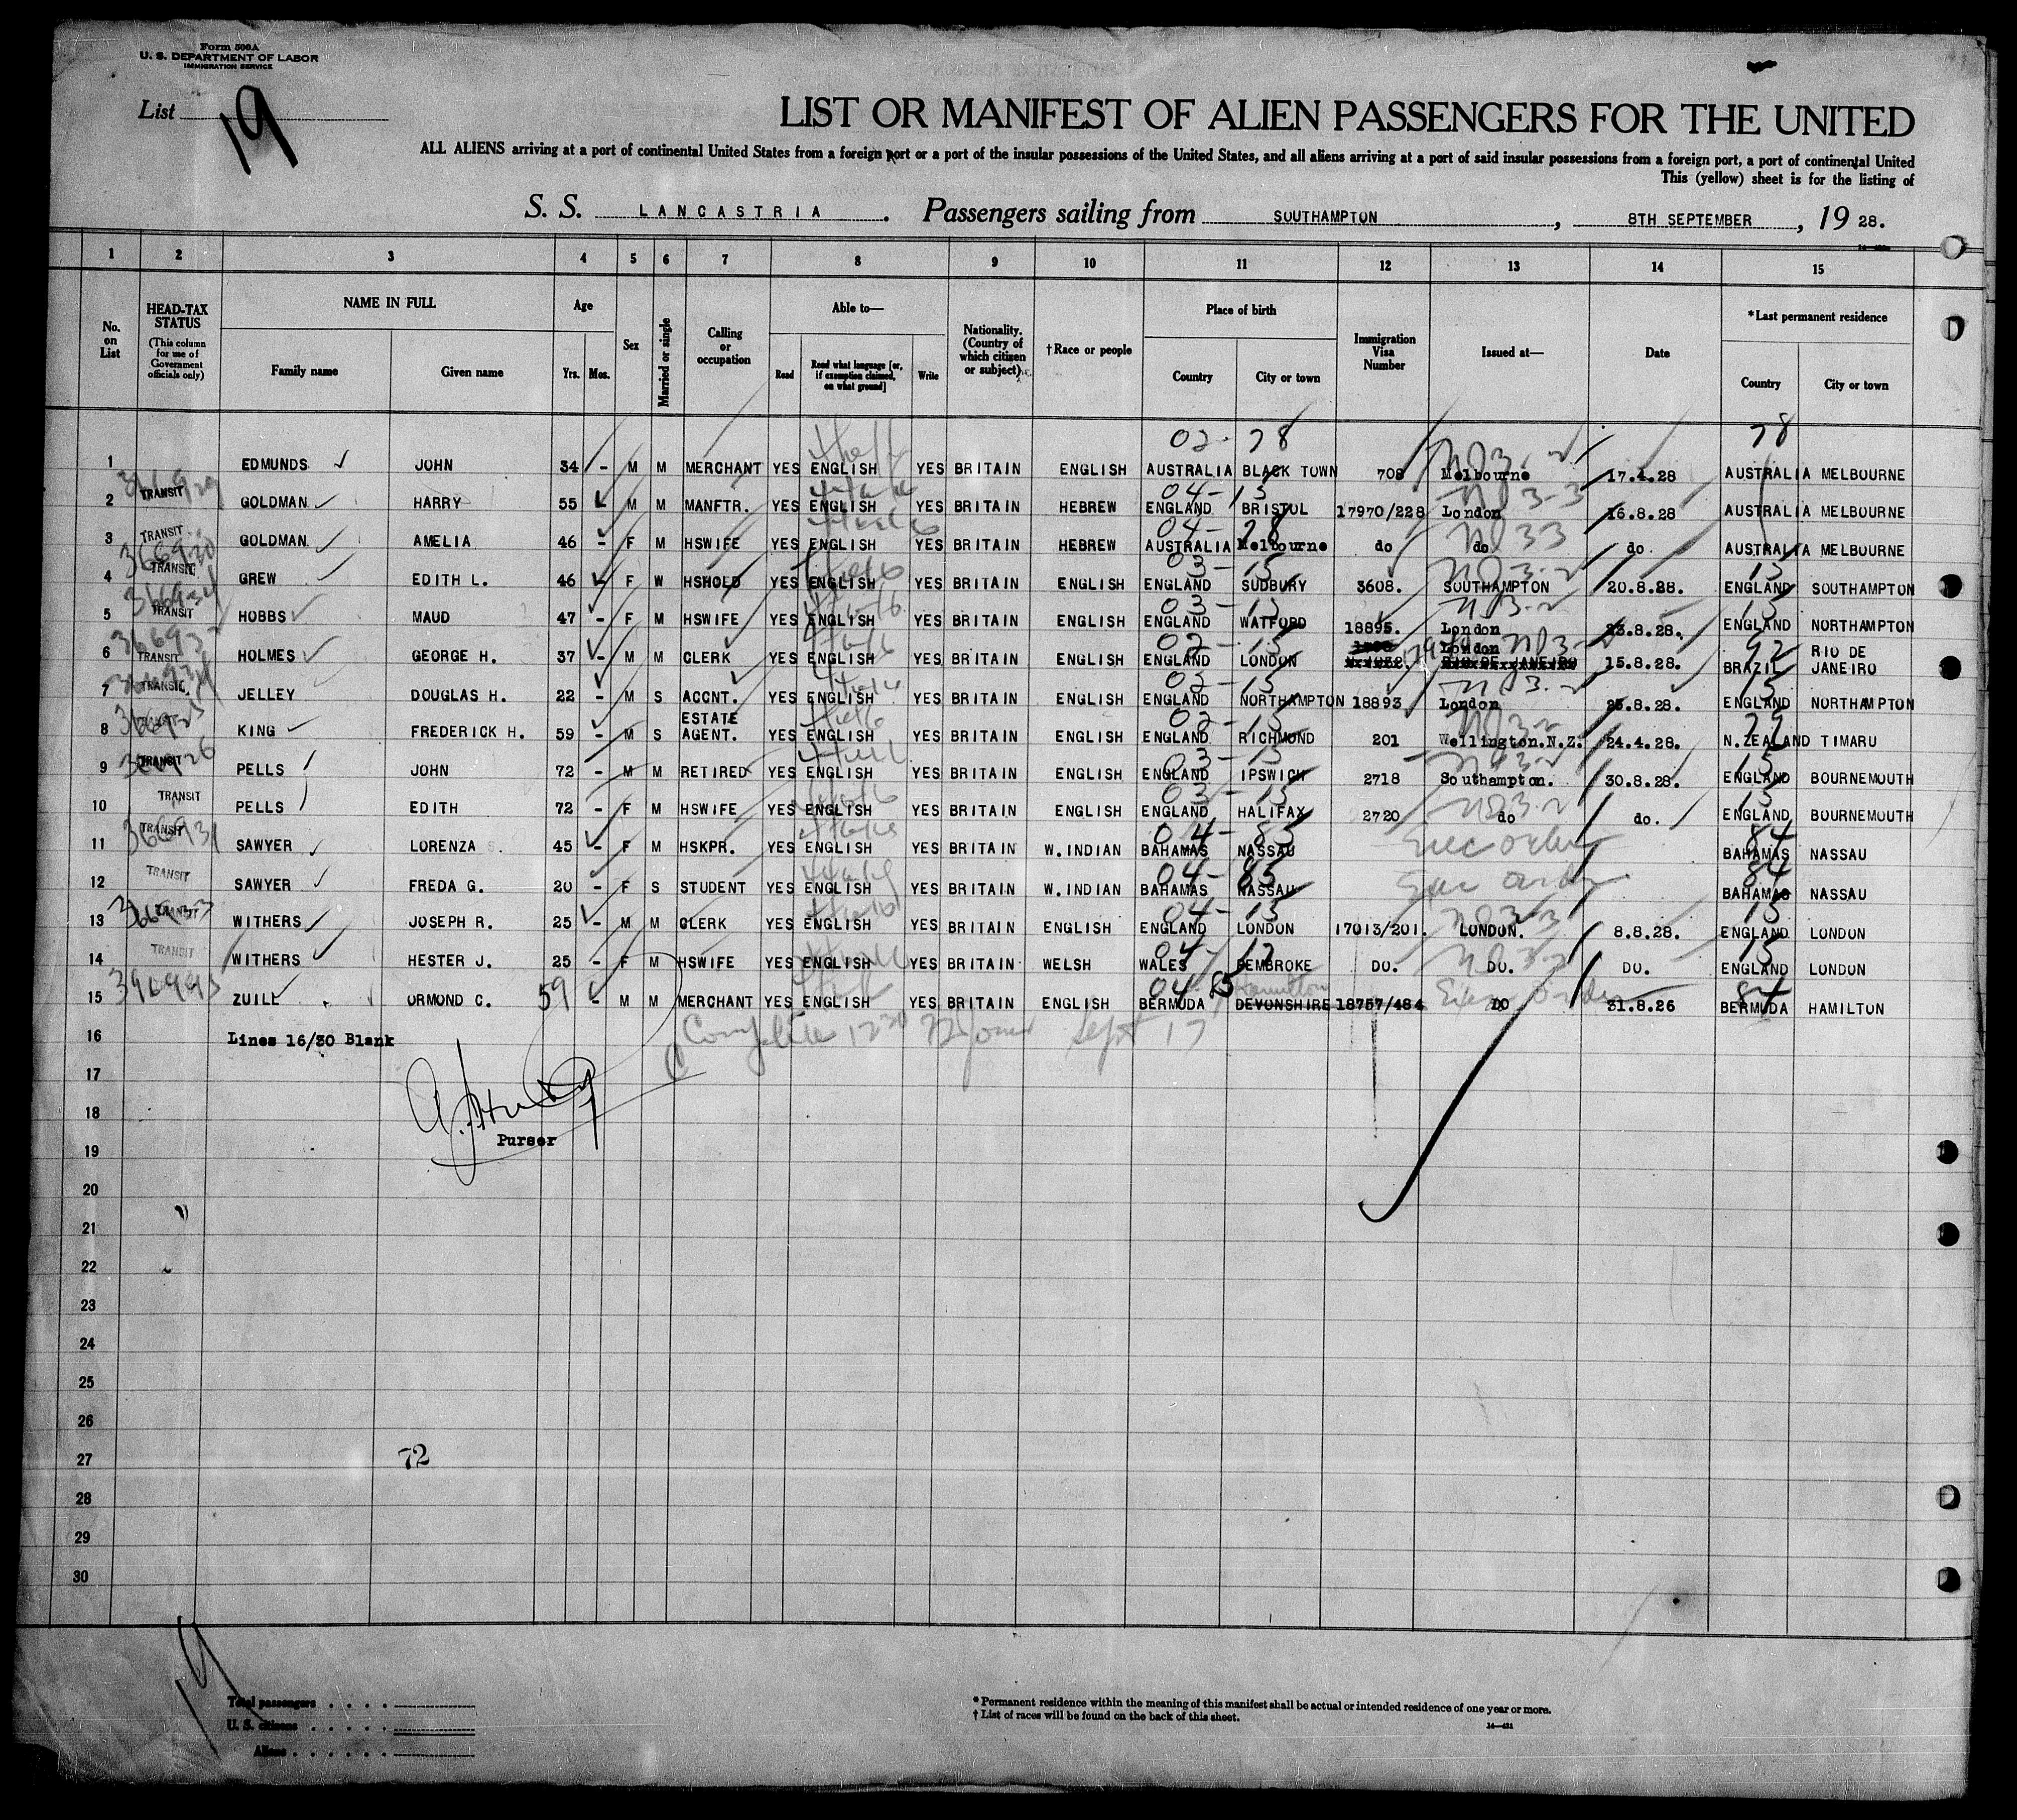 Form 500A
U. S. DEPARTMENT OF LABOR
IMMIGRATION SERVICE
List 19
LIST OR MANIFEST OF ALIEN PASSENGERS FOR THE UNITED
ALL ALIENS arriving at a port of continental United States from a foreign port or a port of the insular possessions of the United States, and all aliens arriving at a port of said insular possessions from a foreign port, a port of continental United
This (yellow) sheet is for the listing of
S. S. LANCASTRIA. Passengers sailing from SOUTHAMPTON, 8TH SEPTEMBER, 19 28.
1 2 3 4 5 6 7 8 9 10 11 12 13 14 15
No. on List
HEAD-TAX STATUS
(This column for use of Government officials only)
NAME IN FULL
Family name
Given name
Age
Yrs. Mos.
Sex
Married or single
Calling or occupation
Able to—
Read
Read what language [or, if exemption claimed, on what ground]
Write
Nationality. (Country of which citizen or subject)
†Race or people
Place of birth
Country
City or town
Immigration Visa Number
Issued at—
Date
*Last permanent residence
Country
City or town
02-78 78
1 EDMUNDS JOHN 34 - M M MERCHANT YES ENGLISH YES BRITAIN ENGLISH AUSTRALIA BLACK TOWN 708 Melbourne 17.4.28 AUSTRALIA MELBOURNE
2 TRANSIT GOLDMAN HARRY 55 M M MANFTR. YES ENGLISH YES BRITAIN HEBREW ENGLAND BRISTOL 17970/228 London 16.8.28 AUSTRALIA MELBOURNE
3 TRANSIT GOLDMAN AMELIA 46 - F M HSWIFE YES ENGLISH YES BRITAIN HEBREW AUSTRALIA Melbourne do do do. AUSTRALIA MELBOURNE
4 TRANSIT GREW EDITH L. 46 F W HSHOLD YES ENGLISH YES BRITAIN ENGLISH ENGLAND SUDBURY 3608. SOUTHAMPTON 20.8.28. ENGLAND SOUTHAMPTON
5 TRANSIT HOBBS MAUD 47 - F M HSWIFE YES ENGLISH YES BRITAIN ENGLISH ENGLAND WATFORD 18895. London 23.8.28. ENGLAND NORTHAMPTON
6 TRANSIT HOLMES GEORGE H. 37 - M M CLERK YES ENGLISH YES BRITAIN ENGLISH ENGLAND LONDON London 15.8.28. BRAZIL RIO DE JANEIRO
7 TRANSIT JELLEY DOUGLAS H. 22 - M S ACCNT. YES ENGLISH YES BRITAIN ENGLISH ENGLAND NORTHAMPTON 18893 London 25.8.28. ENGLAND NORTHAMPTON
8 KING FREDERICK H. 59 - M S ESTATE AGENT. YES ENGLISH YES BRITAIN ENGLISH ENGLAND RICHMOND 201 Wellington.N.Z. 24.4.28. N.ZEALAND TIMARU
9 TRANSIT PELLS JOHN 72 - M M RETIRED YES ENGLISH YES BRITAIN ENGLISH ENGLAND IPSWICH 2718 Southampton. 30.8.28. ENGLAND BOURNEMOUTH
10 TRANSIT PELLS EDITH 72 - F M HSWIFE YES ENGLISH YES BRITAIN ENGLISH ENGLAND HALIFAX 2720 do do. ENGLAND BOURNEMOUTH
11 TRANSIT SAWYER LORENZA 45 - F M HSKPR. YES ENGLISH YES BRITAIN W.INDIAN BAHAMAS NASSAU Exec order BAHAMAS NASSAU
12 TRANSIT SAWYER FREDA G. 20 - F S STUDENT YES ENGLISH YES BRITAIN W.INDIAN BAHAMAS NASSAU BAHAMAS NASSAU
13 TRANSIT WITHERS JOSEPH R. 25 - M M CLERK YES ENGLISH YES BRITAIN ENGLISH ENGLAND LONDON 17013/201. LONDON. 8.8.28. ENGLAND LONDON
14 TRANSIT WITHERS HESTER J. 25 - F M HSWIFE YES ENGLISH YES BRITAIN WELSH WALES PEMBROKE DO. DO. DO. ENGLAND LONDON
15 ZUILL ORMOND C. 59 - M M MERCHANT YES ENGLISH YES BRITAIN ENGLISH BERMUDA DEVONSHIRE 18757/484 DO 31.8.26 BERMUDA HAMILTON
16 Lines 16/30 Blank
17
18
Purser
19
20
21
22
23
24
25
26
27 72
28
29
30
19
Total passengers
U. S. citizens
Aliens
* Permanent residence within the meaning of this manifest shall be actual or intended residence of one year or more.
† List of races will be found on the back of this sheet.
14—431